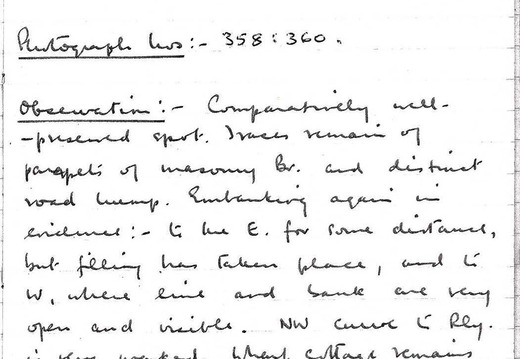 Photograph Nos:- 358:360.
Observation:- Comparatively well-
-preserved spot. Traces remain of
parapets of masonry Br. and distinct
road hump. Embanking again in
evidence:- to the E. for some distance,
but filling has taken place, and to
W, where line and bank are very
open and visible. NW curve to Rly.
is very marked. Wharf cottage remains